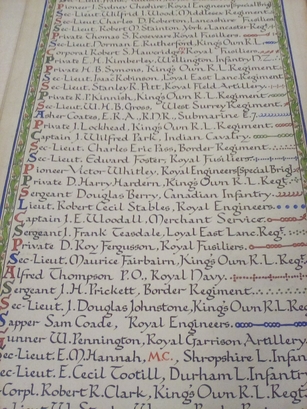 Pioneer
Sec-Lieut. Wilfrid J. Wood, Middlesex Regiment
Sec-Lieut. Charles D. Roberton, Lancashire Fusiliers
Sec-Lieut. Robert M. Stainton, York & Lancaster Regt.
Private Thomas S. Rostron, Royal Fusiliers.
Sec-Lieut. Norman E. Rutherford, King's Own R.L.
Corporal Robert S. Hannidge, Royal Fusiliers
Private E.H. Kimberley, Wellington Infantry N.Z.
Private H.B. Symons, King's Own R.L. Regiment.
Sec-Lieut. Isaac Robinson, Loyal East Lancs. Regiment
Sec-Lieut. Stanley R. Pett, Royal Field Artillery
Private R. Kinnish, King's Own R.L. Regiment.
Sec-Lieut. W.H.B. Gross, West Surrey Regiment.
Asher Coates, E.R.A., R.D.R., Submarine E.7.
Private J. Lockhead, King's Own R.L. Regiment.
Captain J. Wilfrid Park, Indian Cavalry.
Sec-Lieut. Charles Eric Pass, Border Regiment.
Sec-Lieut. Edward Foster, Royal Fusiliers.
Pioneer Victor Whitley, Royal Engineers (Special Brig.
Private D. Harry Hardern, King's Own R.L. Regt.
Sergeant Douglas Berry, Canadian Infantry.
Lieut. Robert Cecil Stables, Royal Engineers.
Captain J.E. Woodall, Merchant Service.
Sergeant J. Frank Teasdale, Loyal East Lanc. Regt.
Private D. Roy Fergusson, Royal Fusiliers.
Sec-Lieut. Maurice Fairbairn, King's Own R.L. Regt.
Alfred Thompson P.O., Royal Navy.
Sergeant J.H. Prickett, Border Regiment.
Sec-Lieut. J. Douglas Johnstone, King's Own R.L. Regt.
Sapper Sam Coade, Royal Engineers.
Gunner W. Pennington, Royal Garrison Artillery
Sec-Lieut. E.M. Hannah, M.C., Shropshire L. Infan
Sec-Lieut. E. Cecil Tootill, Durham L. Infantr
-Corpl. Robert R. Clark, King's Own R.L. Reg